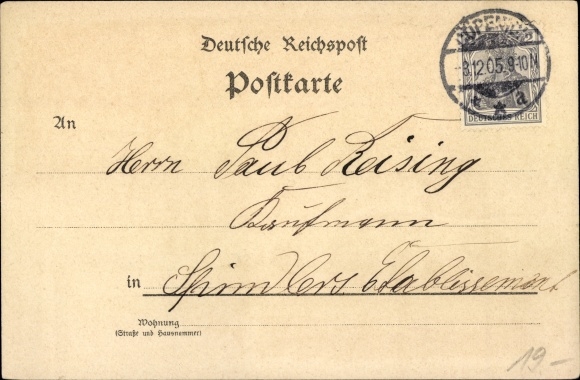 Deutsche Reichspost
Postkarte
CÖPENICK
-8.12.05.9-10N
* * a
DEUTSCHES REICH
An
Herrn Paul Reising
Kaufmann
in Spindlers Etablissement
Wohnung
(Straße und Hausnummer)
19-